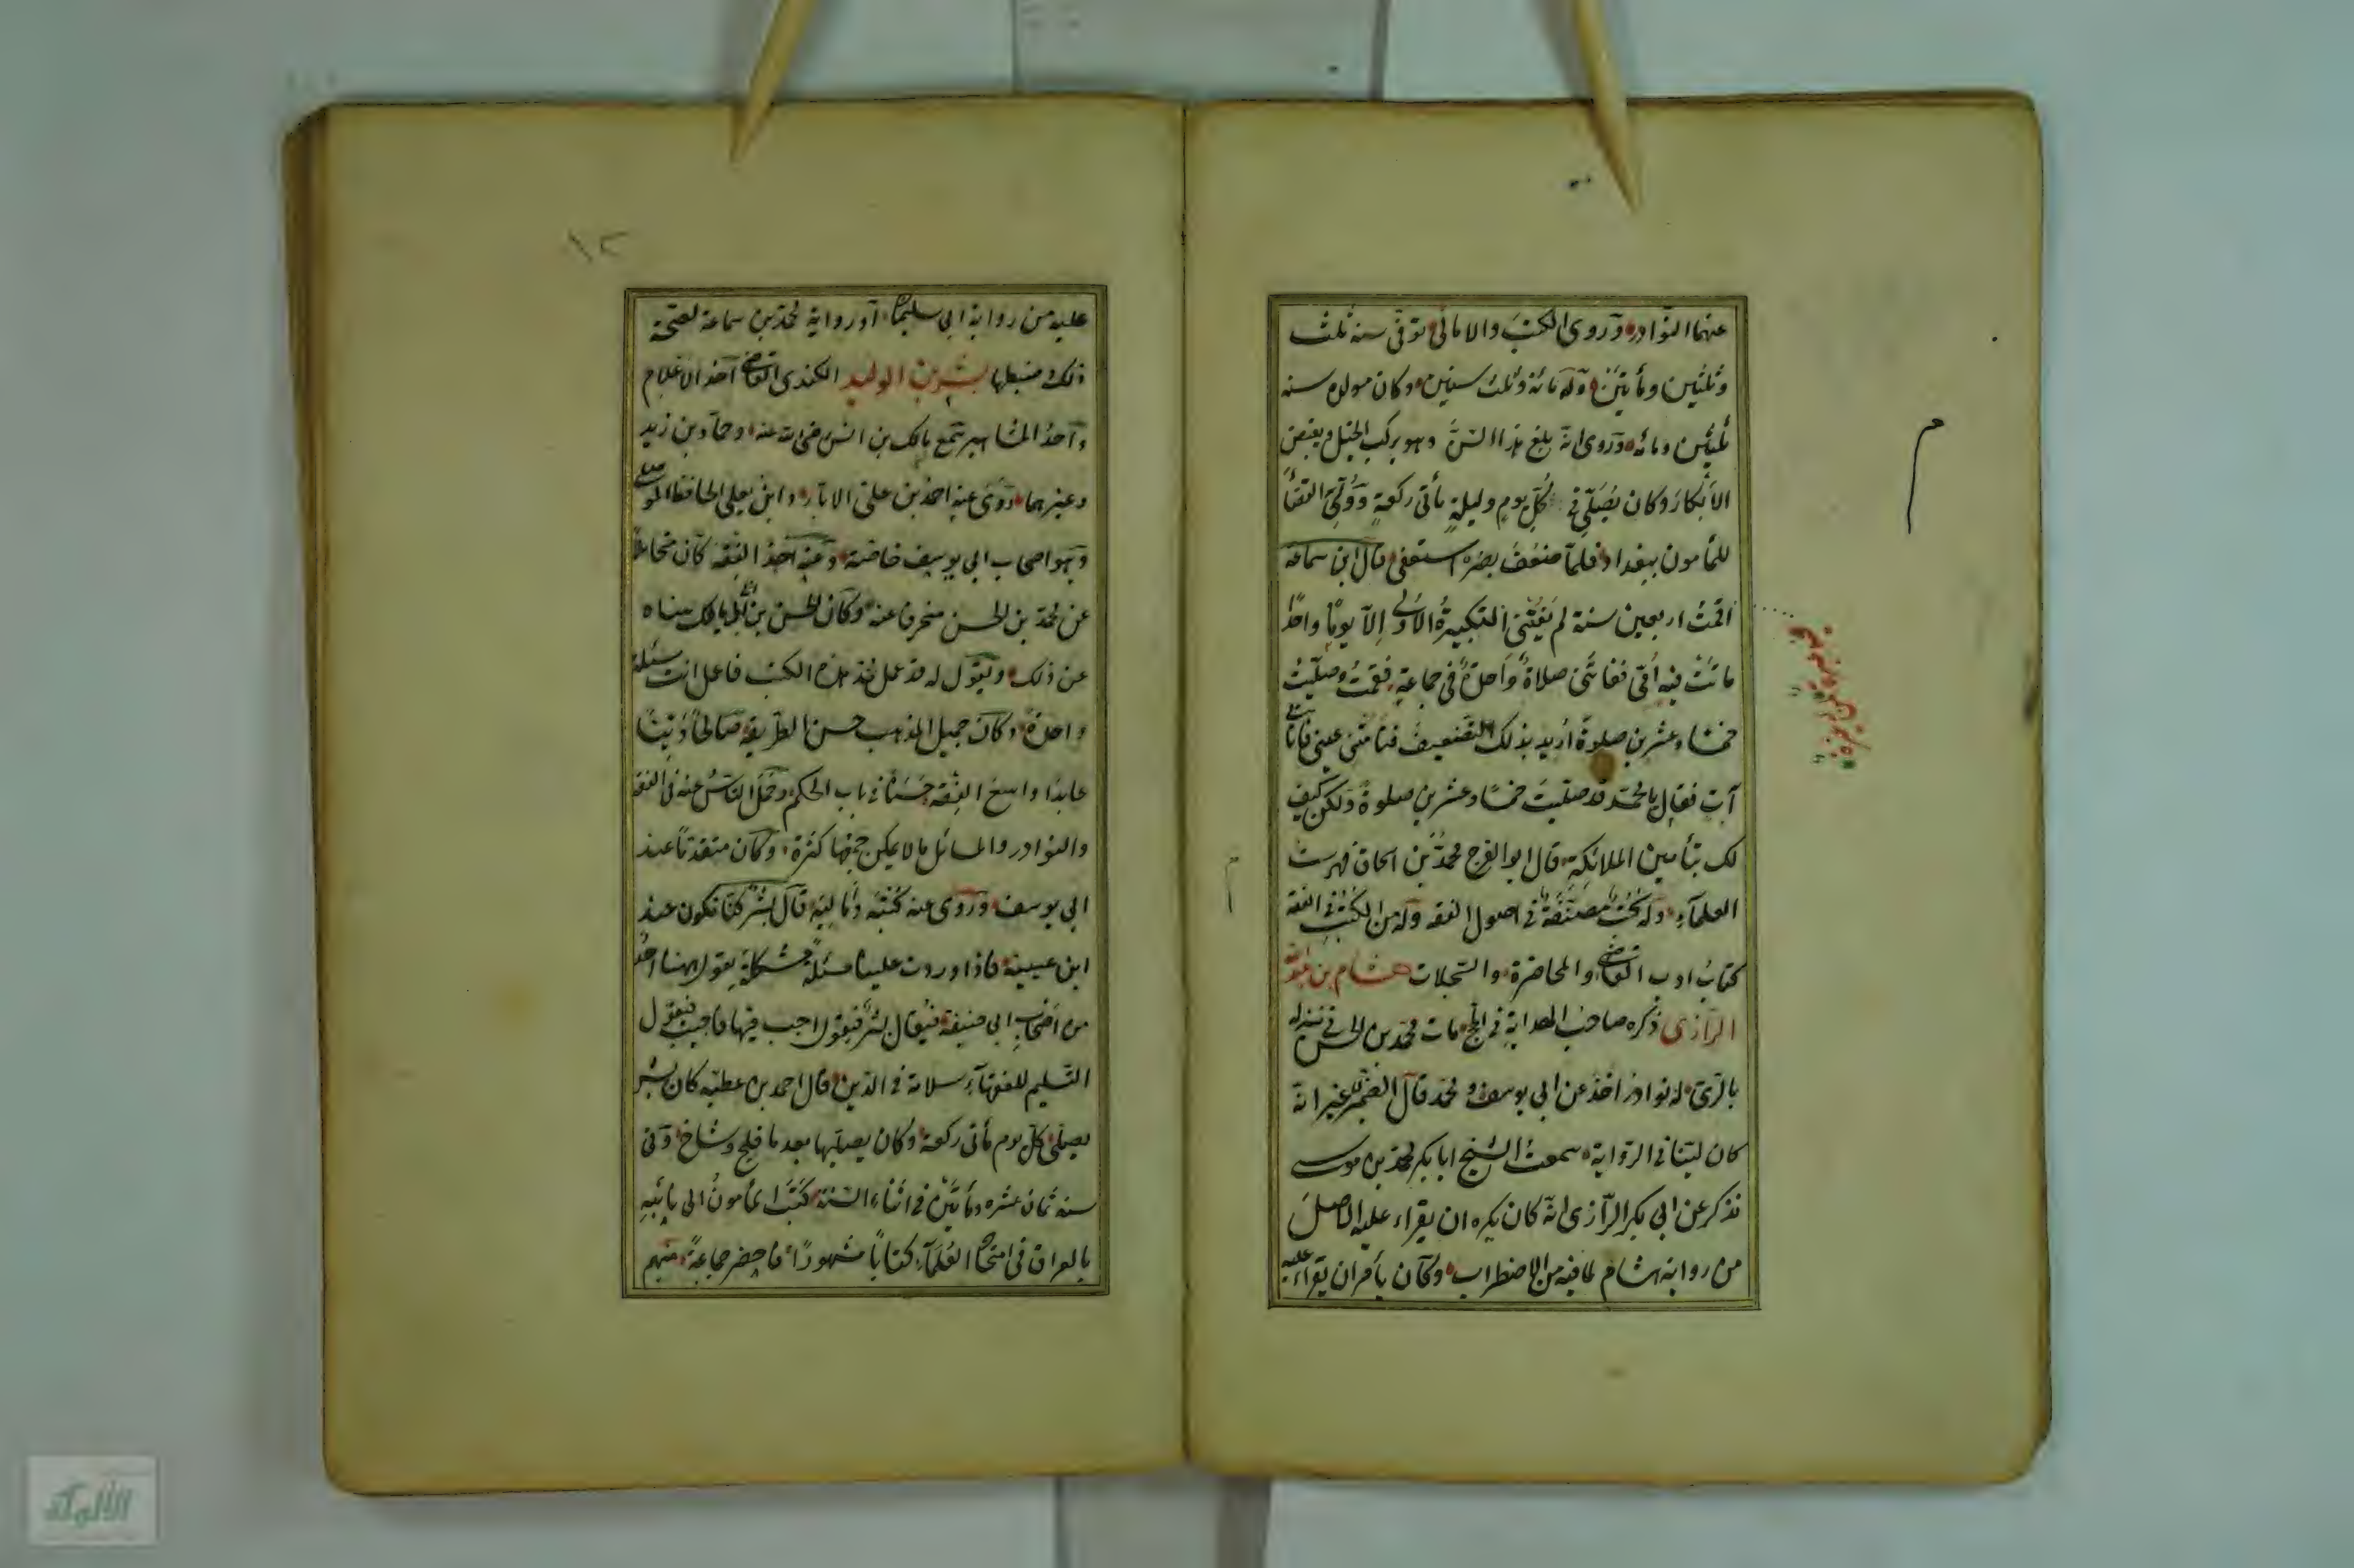 عنهما النوادر وروى الكتب والامالى توفى سنة ثلث
وثلثين ومأتين وله مائة وثلث سنين وكان مولده سنة
ثلثين ومائة وروى انه بلغ هذا السن وهو يركب الخيل ويفتض
الأبكار وكان يصلى فى كل يوم وليلة مأتى ركعة وولى القضا
للمأمون ببغداد فلما ضعف بصره استعفى قال ابن سماعة
اقمت اربعين سنة لم يفتنى التكبيرة الاولى إلا يوما واحدا
ماتت فيه أمى ففاتتنى صلاة واحدة فى جماعة فقمت وصليت
خمسا وعشرين صلوة اريد بذلك التضعيف فنامتنى عينى فأتانى
آت فقال يا محمد قد صليت خمسا وعشرين صلوة ولكن كيف
لك بتأمين الملائكة قال ابو الفرج محمد بن اسحاق فهرست
العلماء وله كتب مصنفة فى اصول الفقه وله من الكتب فى الفقه
كتاب ادب القاضى والمحاضرة والسجلات هشام بن عبد الله
الرازى ذكره صاحب الهداية فى الحج مات محمد بن الحسن فى منزله
بالرى له نوادر اخذ عن ابى يوسف ومحمد قال الصيمرى غير انه
كان لينا فى الرواية سمعت الشيخ ابا بكر محمد بن موسى
نذكر عن ابى بكر الرازى انه كان يكره ان يقراء عليه الاصل
من رواية هشام لما فيه من الاضطراب وكان يأمر ان يقراء عليه
١٢
عليه من رواية ابى سليمان او رواية محمد بن سماعة لصحة
ذلك وضبطها بشر بن الوليد الكندى القاضى احد الاعلام
واحد المشاهير سمع مالك بن انس رضى الله عنه وحماد بن زيد
وغيرهما روى عنه احمد بن على الابار وابن يعلى الحافظ الموصلى
وهو اصحاب ابى يوسف خاصة وعنه اخذ الفقه كان متحاملا
عن محمد بن الحسن منحرفا عنه وكان الحسن بن ابى مالك ينهاه
عن ذلك ويقول له قد عمل محمد هذه الكتب فاعمل انت مسئلة
واحدة وكان جميل المذهب حسن الطريقة صالحا دينا
عابدا واسع الفقه حسنا فى باب الحكم وحمل الناس عنه فى الفقه
والنوادر والمسائل ما لا يمكن جمعها كثرة وكان متقدما عند
ابى يوسف وروى عنه كتبه وأماليه قال بشر كنا نكون عند
ابن عيينة فاذا وردت علينا مسئلة مشكلة يقول اههنا احد
من اصحاب ابى حنيفة فيقال بشر فيقول اجب فيها فاجيب فيقول
التسليم للفقهاء سلامة فى الدين قال احمد بن عطيه كان بشر
يصلى كل يوم مأتى ركعة وكان يصليها بعد ما فلج وشاخ وفى
سنة ثمان عشره ومأتين فى اثناء السنة كتب المأمون الى نائبه
بالعراق فى امتحان العلماء كتابا مشهورا فاحضر جماعة منهم
الألوكة